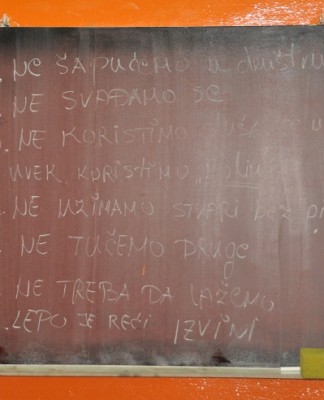 NE ŠAPUĆEMO u društvu
NE SVAĐAMO SE
NE KORISTIMO
UVEK KORISTIMO
NE UZIMAMO STVARI BEZ
NE TUČEMO DRUGE
NE TREBA DA LAŽEMO
LEPO JE REĆI IZVINI